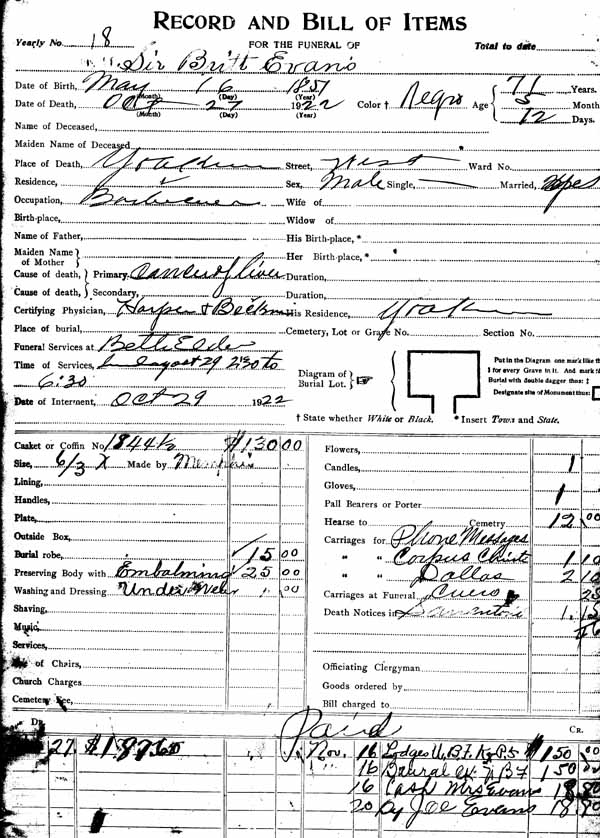 RECORD AND BILL OF ITEMS
Yearly No. 18 FOR THE FUNERAL OF Total to date
Sir Britt Evans
Date of Birth, May 16 1851
(Month) (Day) (Year)
Date of Death, Oct 27 1922 Color † Negro Age 71 Years.
(Month) (Day) (Year)
5 Month
12 Days.
Name of Deceased,
Maiden Name of Deceased,
Place of Death, Yoakum Street, West Ward No.
Residence, Sex, Male Single, Married,
Occupation, Wife of
Birth-place, Widow of
Name of Father, His Birth-place, *
Maiden Name of Mother Her Birth-place, *
Cause of death, Primary, Cancer of liver Duration,
Cause of death, Secondary, Duration,
Certifying Physician, Harper & His Residence, Yoakum
Place of burial, Cemetery, Lot or Grave No. Section No.
Funeral Services at
Time of Services, 29 2:30 to
6:30
Diagram of Burial Lot.
Put in the Diagram one mark like th
‡ for every Grave in it. And mark th
Burial with double dagger thus: ‡
Designate site of Monument thus:
Date of Interment, Oct 29 1922
† State whether White or Black. * Insert Town and State.
Casket or Coffin No. 1844½ $130 00
Size, 6/3 X Made by Memphis
Lining,
Handles,
Plate,
Outside Box,
Burial robe, 15 00
Preserving Body with Embalming 25 00
Washing and Dressing Under 00
Shaving,
Music,
Services,
of Chairs,
Church Charges
Cemetery Fee,
Flowers,
Candles, 1
Gloves, 1
Pall Bearers or Porter
Hearse to Cemetry 12 00
Carriages for Phone Messages
" " Corpus Christi 1 10
" " Dallas 2 10
Carriages at Funeral, Cuero 25
Death Notices in 1.15
Officiating Clergyman
Goods ordered by
Bill charged to
Dr. Paid Cr.
27 $187.60 Nov. 16 Lodges U.B.F. K of P.S $150 00
16 Burial U B F 1 50 00
16 Cash Mrs Evans 18 80
20 By Joe Evans 18 80